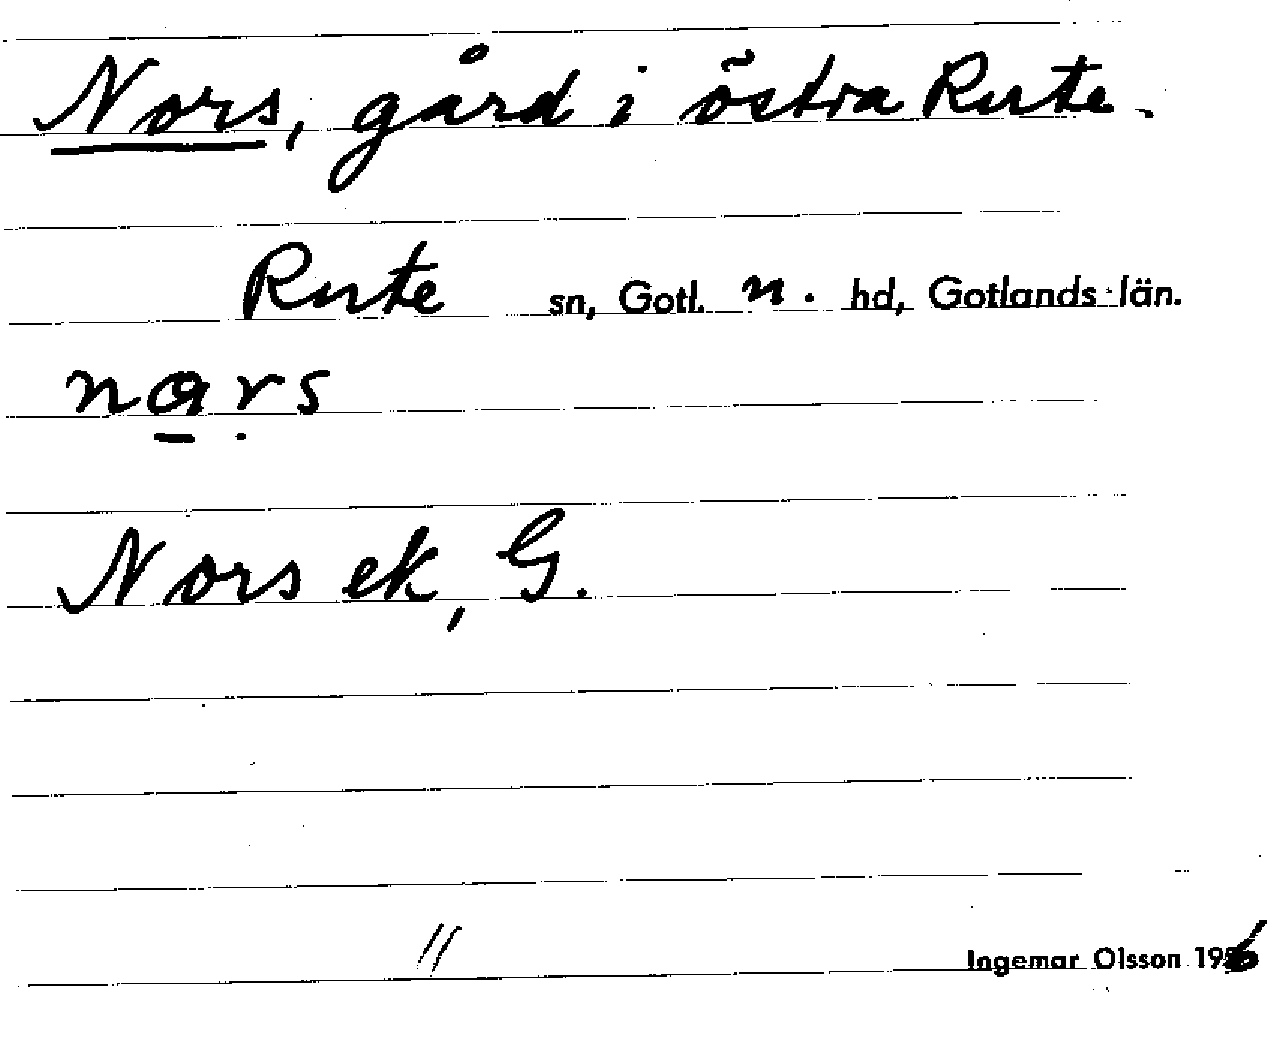 Nors, gård i östra Rute.
Rute sn, Gotl. n. hd, Gotlands län.
nars
Nors ek, G.
Ingemar Olsson 19